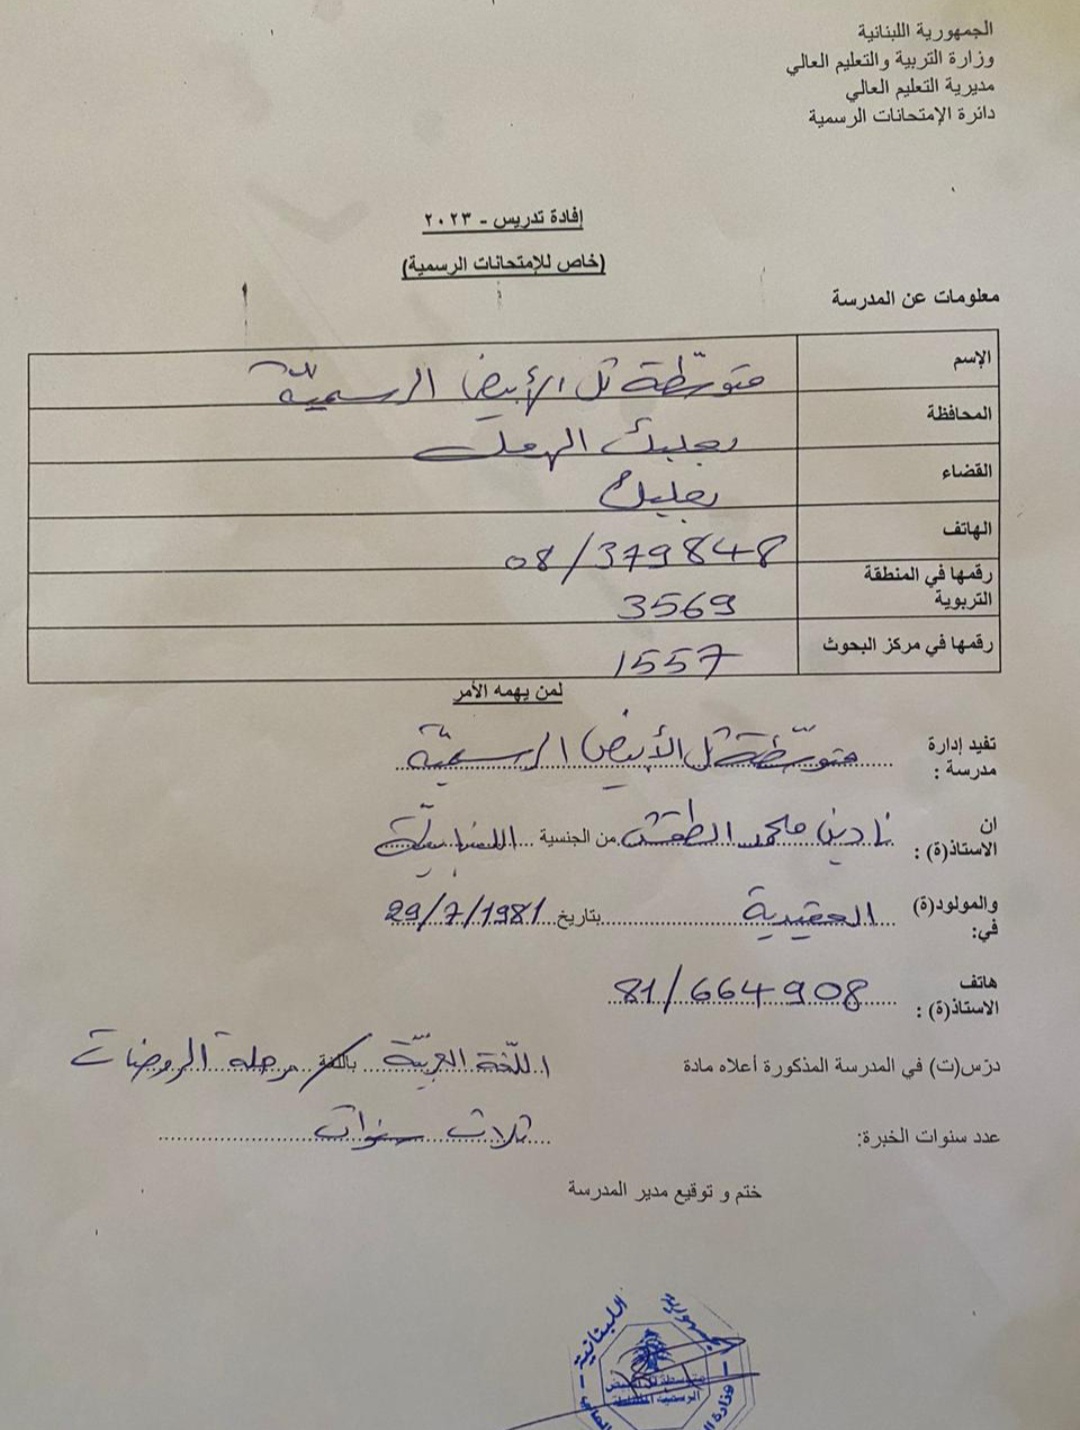 الجمهورية اللبنانية
وزارة التربية والتعليم العالي
مديرية التعليم العالي
دائرة الإمتحانات الرسمية
إفادة تدريس - ٢٠٢٣
(خاص للإمتحانات الرسمية)
معلومات عن المدرسة
الإسم متوسّطة تل الأبيض الرسميّة
المحافظة بعلبك الهرمل
القضاء بعلبك
الهاتف 08/379848
رقمها في المنطقة التربوية 3569
رقمها في مركز البحوث 1557
لمن يهمه الأمر
تفيد إدارة مدرسة : متوسّطة تل الأبيض الرسميّة
ان الاستاذ(ة) : نادين محمد الطقش من الجنسية اللبنانيّة
والمولود(ة) في: العقيدية بتاريخ 29/7/1981
هاتف الاستاذ(ة) : 81/664908
درّس(ت) في المدرسة المذكورة أعلاه مادة اللّغة العربيّة باللغة مرحلة الروضات
عدد سنوات الخبرة: ثلاث سنوات
ختم و توقيع مدير المدرسة
الجمهورية اللبنانية
الرسمية المختلطة
وزارة